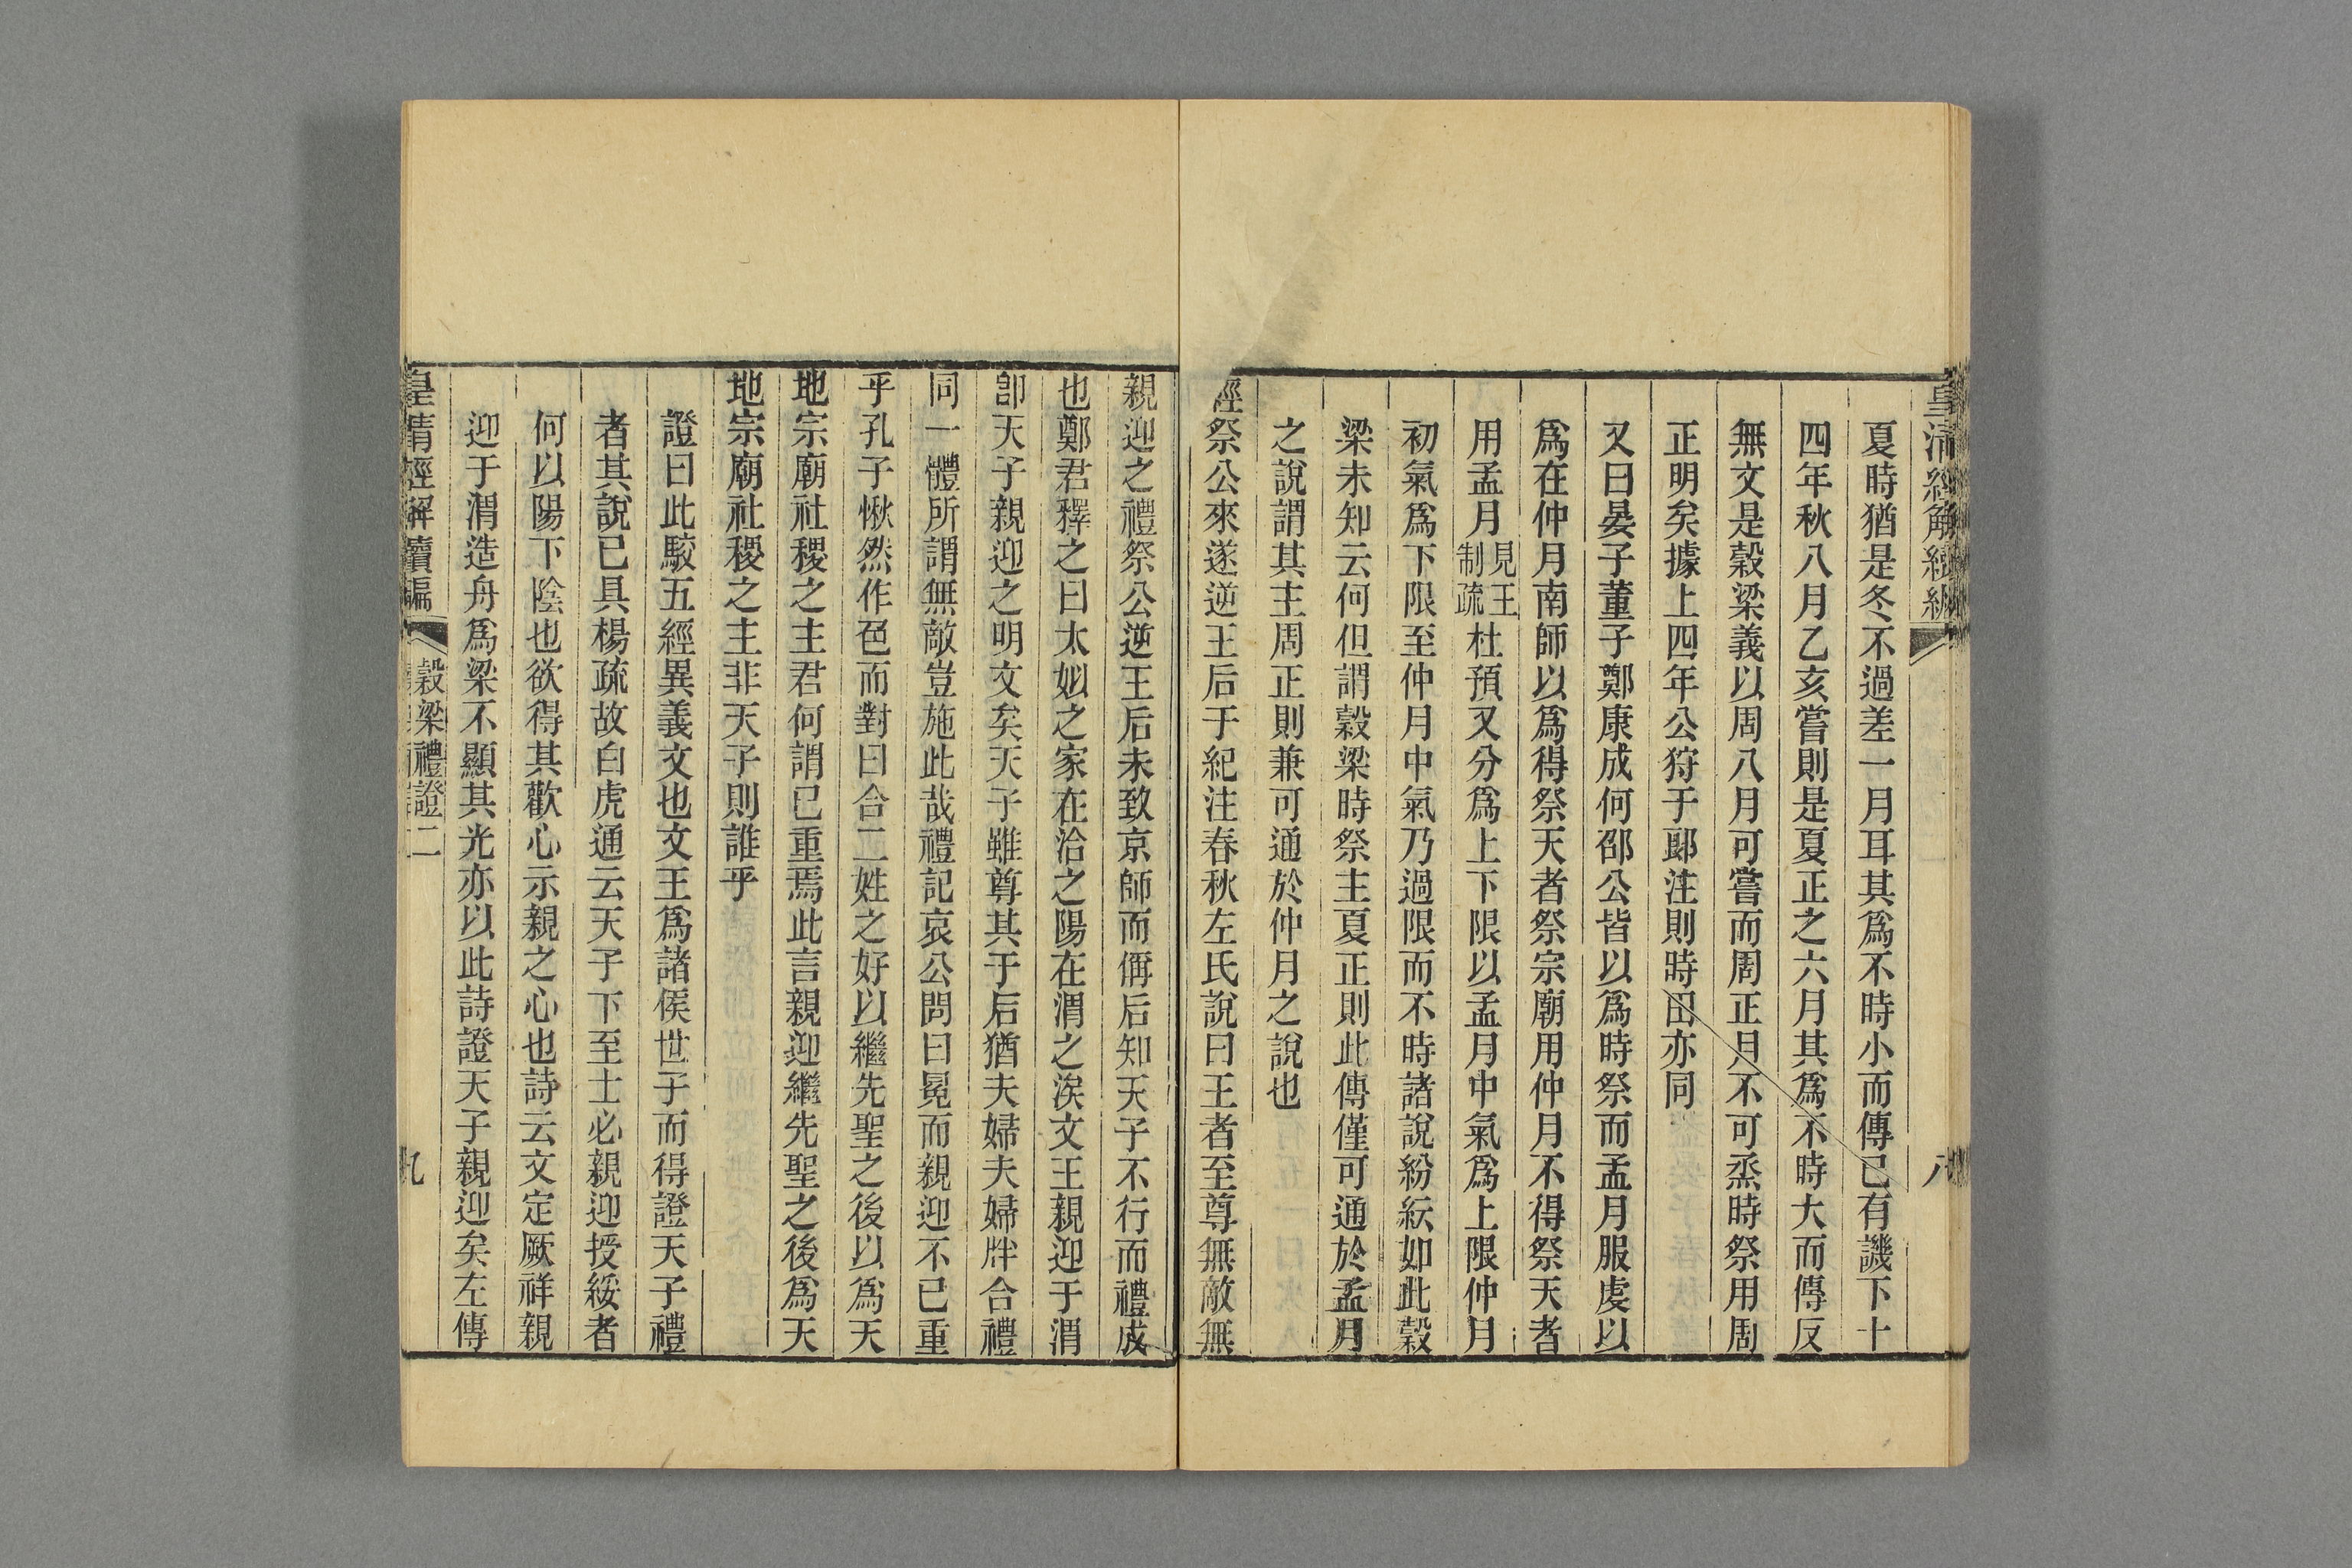 皇清經解續編
八
夏時猶是冬不過差一月耳其爲不時小而傳已有譏下十
四年秋八月乙亥嘗則是夏正之六月其爲不時大而傳反
無文是穀梁義以周八月可嘗而周正月不可烝時祭用周
正明矣據上四年公狩于郞注則時田亦同
又曰晏子董子鄭康成何邵公皆以爲時祭而孟月服虔以
爲在仲月南師以爲得祭天者祭宗廟用仲月不得祭天者
用孟月見王制疏杜預又分爲上下限以孟月中氣爲上限仲月
初氣爲下限至仲月中氣乃過限而不時諸說紛紜如此穀
梁未知云何但謂穀梁時祭主夏正則此傳僅可通於孟月
之說謂其主周正則兼可通於仲月之說也
經祭公來遂逆王后于紀注春秋左氏說曰王者至尊無敵無
親迎之禮祭公逆王后未致京師而偁后知天子不行而禮成
也鄭君釋之曰太姒之家在洽之陽在渭之涘文王親迎于渭
卽天子親迎之明文矣天子雖尊其于后猶夫婦夫婦牉合禮
同一體所謂無敵豈施此哉禮記哀公問曰冕而親迎不已重
乎孔子愀然作色而對曰合二姓之好以繼先聖之後以爲天
地宗廟社稷之主君何謂已重焉此言親迎繼先聖之後爲天
地宗廟社稷之主非天子則誰乎
證曰此駮五經異義文也文王爲諸侯世子而得證天子禮
者其說已具楊疏故白虎通云天子下至士必親迎授綏者
何以陽下陰也欲得其歡心示親之心也詩云文定厥祥親
迎于渭造舟爲梁不顯其光亦以此詩證天子親迎矣左傳
皇清經解續編
穀梁禮證二
九